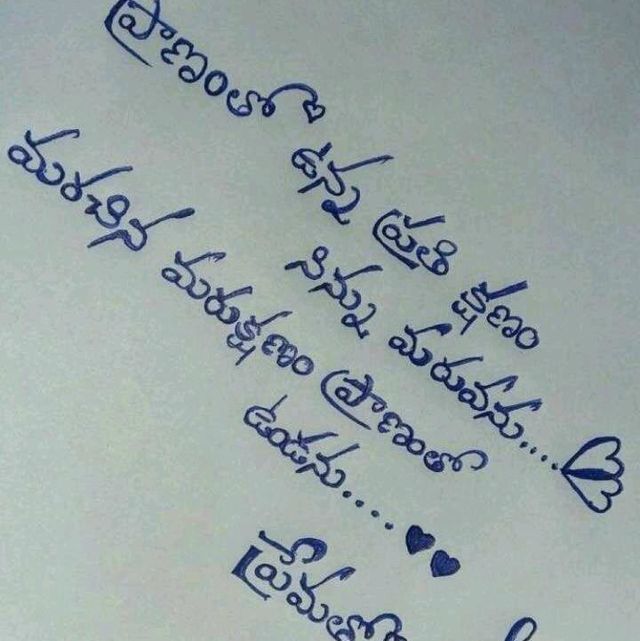 ప్రాణంతో
ఉన్న ప్రతి క్షణం
నిన్ను మరువను....
మరచిన మరుక్షణం ప్రాణంతో
ఉండను....
ప్రేమతో